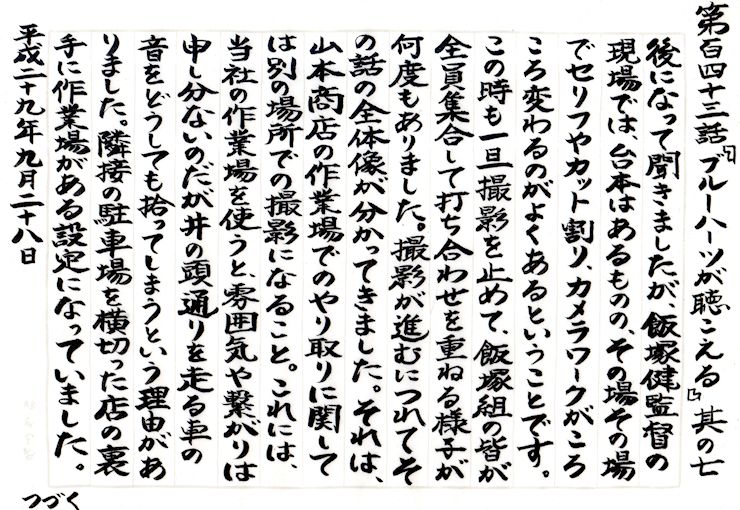 第百四十三話『ブルーハーツが聴こえる』其の七
後になって聞きましたが、飯塚健監督の
現場では、台本はあるものの、その場その場
でセリフやカット割り、カメラワークがころ
ころ変わるのがよくあるということです。
この時も一旦撮影を止めて、飯塚組の皆が
全員集合して打ち合わせを重ねる様子が
何度もありました。撮影が進むにつれてそ
の話の全体像が分かってきました。それは、
山本商店の作業場でのやり取りに関して
は別の場所での撮影になること。これには、
当社の作業場を使うと、雰囲気や繋がりは
申し分ないのだが井の頭通りを走る車の
音をどうしても拾ってしまうという理由があ
りました。隣接の駐車場を横切った店の裏
手に作業場がある設定になっていました。
平成二十九年九月二十八日
つづく